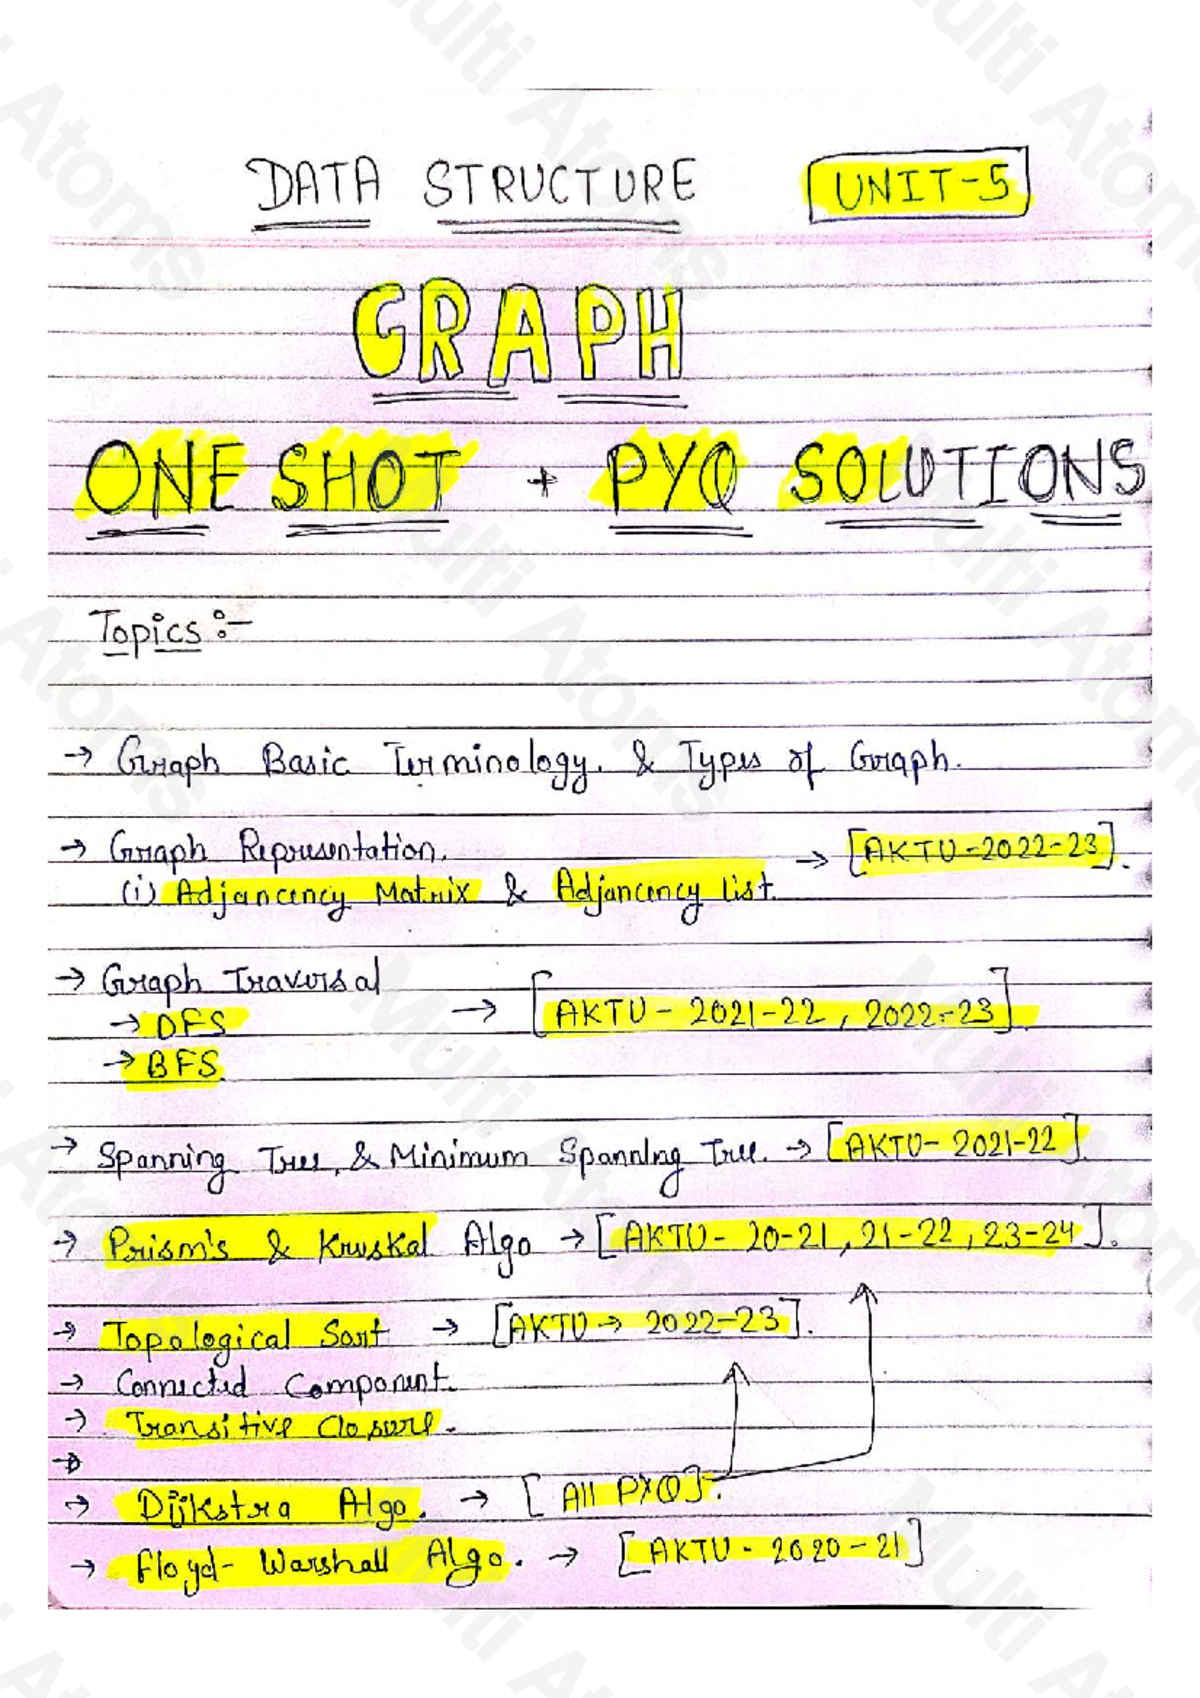 DATA STRUCTURE UNIT-5
GRAPH
ONE SHOT + PYQ SOLUTIONS
Topics :-
→ Graph Basic Terminology. & Types of Graph.
→ Graph Representation. → [AKTU-2022-23].
(i) Adjancency Matrix & Adjancency list.
→ Graph Traversal
→ DFS → [AKTU - 2021-22, 2022-23].
→ BFS.
→ Spanning Tree, & Minimum Spanning Tree. → [AKTU- 2021-22].
→ Prism's & Kruskal Algo → [AKTU- 20-21, 21-22, 23-24].
→ Topological Sort → [AKTU → 2022-23].
→ Connected Component.
→ Transitive Closure.
→
→ Dijkstra Algo. → [All PYQ].
→ Floyd-Warshall Algo. → [AKTU - 2020-21]
Multi Atoms